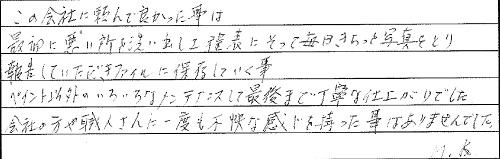 この会社に頼んで良かった事は
最初に悪い所を洗い出して工程表にそって毎日きちっと写真をとり
報告していただきファイルに保存していく事
ペイント以外のいろいろなメンテナンスして最後まで丁寧な仕上がりでした
会社の方や職人さんに一度も不快な感じを持った事はありませんでした
M.K